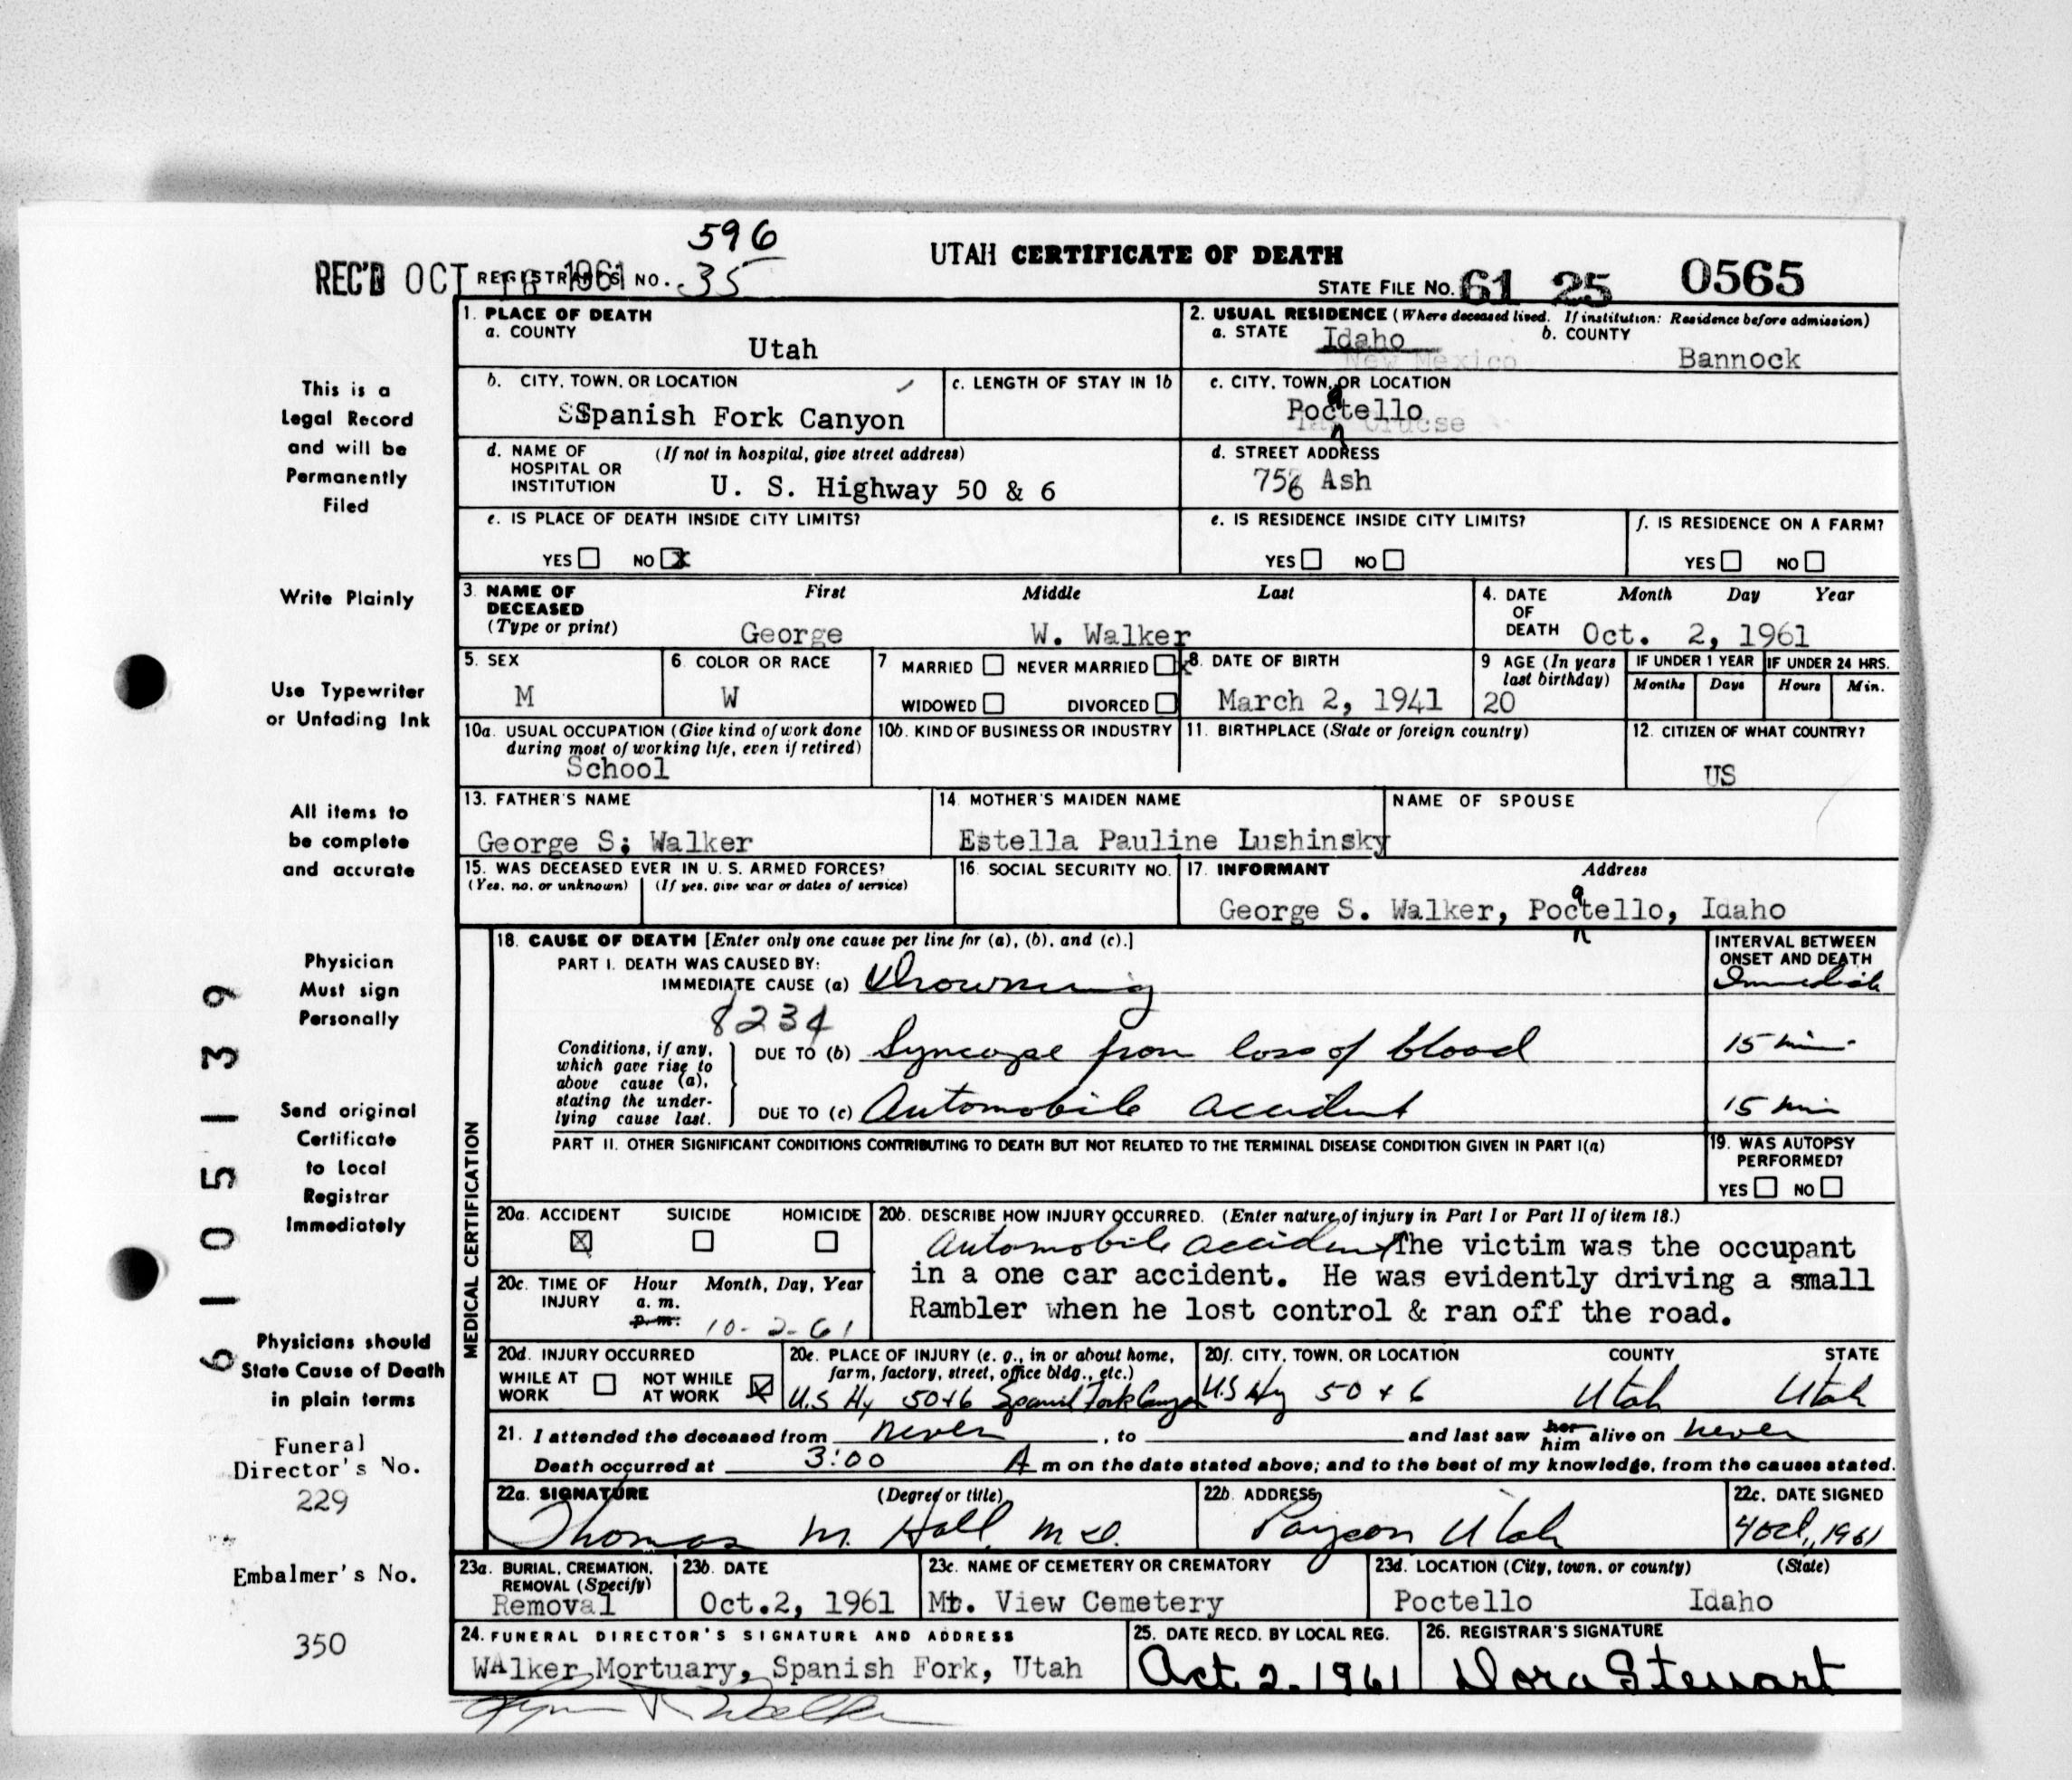 596
UTAH CERTIFICATE OF DEATH
REC'D OCT 1961 REGISTRAR'S NO. 35
STATE FILE NO. 61 25 0565
1. PLACE OF DEATH
a. COUNTY
Utah
2. USUAL RESIDENCE (Where deceased lived. If institution: Residence before admission)
a. STATE Idaho
New Mexico
b. COUNTY
Bannock
b. CITY, TOWN, OR LOCATION
SSpanish Fork Canyon
c. LENGTH OF STAY IN 1b
c. CITY, TOWN, OR LOCATION
Poctello
a
d. NAME OF HOSPITAL OR INSTITUTION
(If not in hospital, give street address)
U. S. Highway 50 & 6
d. STREET ADDRESS
756 Ash
e. IS PLACE OF DEATH INSIDE CITY LIMITS?
YES NO X
e. IS RESIDENCE INSIDE CITY LIMITS?
YES NO
f. IS RESIDENCE ON A FARM?
YES NO
3. NAME OF DECEASED
(Type or print)
First Middle Last
George W. Walker
4. DATE OF DEATH
Month Day Year
Oct. 2, 1961
5. SEX
M
6. COLOR OR RACE
W
7 MARRIED NEVER MARRIED X
WIDOWED DIVORCED
8. DATE OF BIRTH
March 2, 1941
9 AGE (In years last birthday)
20
IF UNDER 1 YEAR
Months Days
IF UNDER 24 HRS.
Hours Min.
10a. USUAL OCCUPATION (Give kind of work done
during most of working life, even if retired)
School
10b. KIND OF BUSINESS OR INDUSTRY
11. BIRTHPLACE (State or foreign country)
12. CITIZEN OF WHAT COUNTRY?
US
13. FATHER'S NAME
George S; Walker
14. MOTHER'S MAIDEN NAME
Estella Pauline Lushinsky
NAME OF SPOUSE
15. WAS DECEASED EVER IN U. S. ARMED FORCES?
(Yes, no, or unknown) (If yes, give war or dates of service)
16. SOCIAL SECURITY NO.
17. INFORMANT Address
a
George S. Walker, Poctello, Idaho
MEDICAL CERTIFICATION
18. CAUSE OF DEATH [Enter only one cause per line for (a), (b), and (c).]
INTERVAL BETWEEN
ONSET AND DEATH
PART I. DEATH WAS CAUSED BY:
IMMEDIATE CAUSE (a) Drowning
Immediate
8234
Conditions, if any,
which gave rise to
above cause (a),
stating the under-
lying cause last.
DUE TO (b) Syncope from loss of blood
15 min.
DUE TO (c) Automobile accident
15 min
PART II. OTHER SIGNIFICANT CONDITIONS CONTRIBUTING TO DEATH BUT NOT RELATED TO THE TERMINAL DISEASE CONDITION GIVEN IN PART I(a)
19. WAS AUTOPSY
PERFORMED?
YES NO
20a. ACCIDENT SUICIDE HOMICIDE
X
20b. DESCRIBE HOW INJURY OCCURRED. (Enter nature of injury in Part I or Part II of item 18.)
Automobile accident The victim was the occupant
in a one car accident. He was evidently driving a small
Rambler when he lost control & ran off the road.
20c. TIME OF INJURY
Hour Month, Day, Year
a. m.
p. m. 10-2-61
20d. INJURY OCCURRED
WHILE AT WORK NOT WHILE AT WORK X
20e. PLACE OF INJURY (e. g., in or about home,
farm, factory, street, office bldg., etc.)
U.S Hy 50+6 Spanish Fork Canyon
20f. CITY, TOWN, OR LOCATION COUNTY STATE
U.S Hy 50 + 6 Utah Utah
21. I attended the deceased from never , to and last saw her him alive on never
Death occurred at 3:00 A m on the date stated above; and to the best of my knowledge, from the causes stated.
22a. SIGNATURE (Degree or title)
Thomas M. Hall, M.D.
22b. ADDRESS
Payson Utah
22c. DATE SIGNED
4 Oct, 1961
23a. BURIAL, CREMATION,
REMOVAL (Specify)
Removal
23b. DATE
Oct.2, 1961
23c. NAME OF CEMETERY OR CREMATORY
Mt. View Cemetery
23d. LOCATION (City, town, or county) (State)
Poctello Idaho
24. FUNERAL DIRECTOR'S SIGNATURE AND ADDRESS
WAlker Mortuary, Spanish Fork, Utah
25. DATE RECD. BY LOCAL REG.
Oct. 2. 1961
26. REGISTRAR'S SIGNATURE
Dora Stewart
Walker
This is a
Legal Record
and will be
Permanently
Filed
Write Plainly
Use Typewriter
or Unfading Ink
All items to
be complete
and accurate
Physician
Must sign
Personally
Send original
Certificate
to Local
Registrar
Immediately
Physicians should
State Cause of Death
in plain terms
Funeral
Director's No.
229
Embalmer's No.
350
6105139